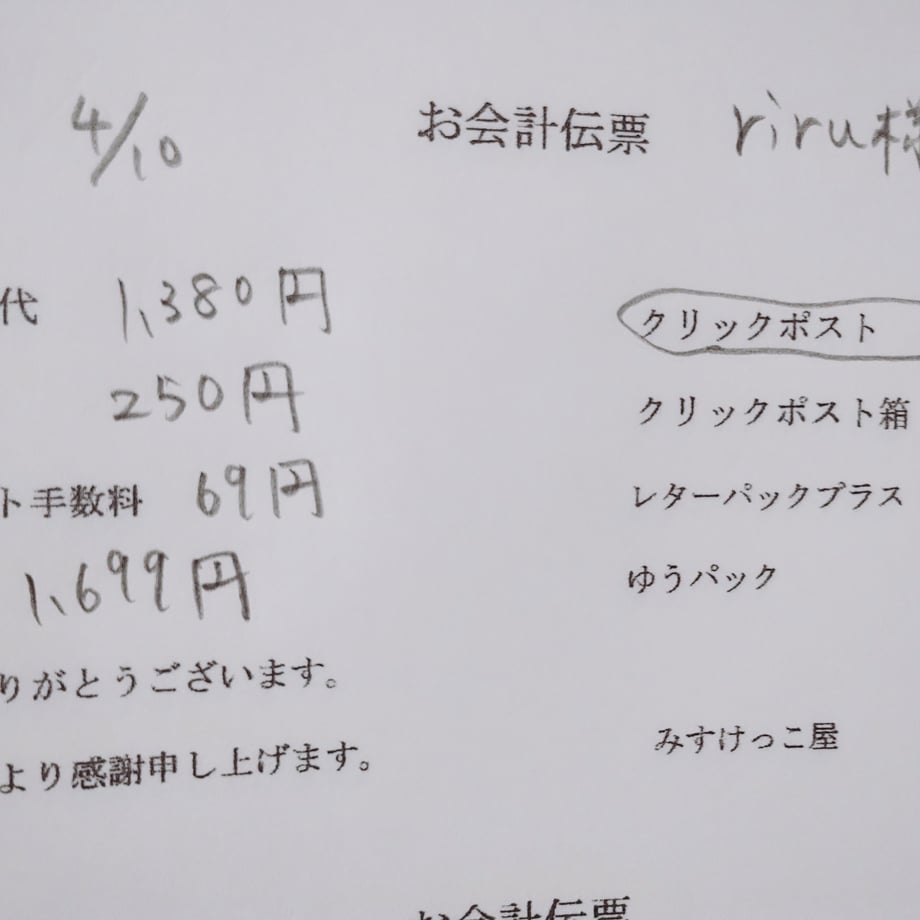 4/10 お会計伝票 riru様
代 1,380円 クリックポスト
250円 クリックポスト箱
ト手数料 69円 レターパックプラス
1,699円 ゆうパック
りがとうございます。
より感謝申し上げます。 みすけっこ屋
お会計伝票